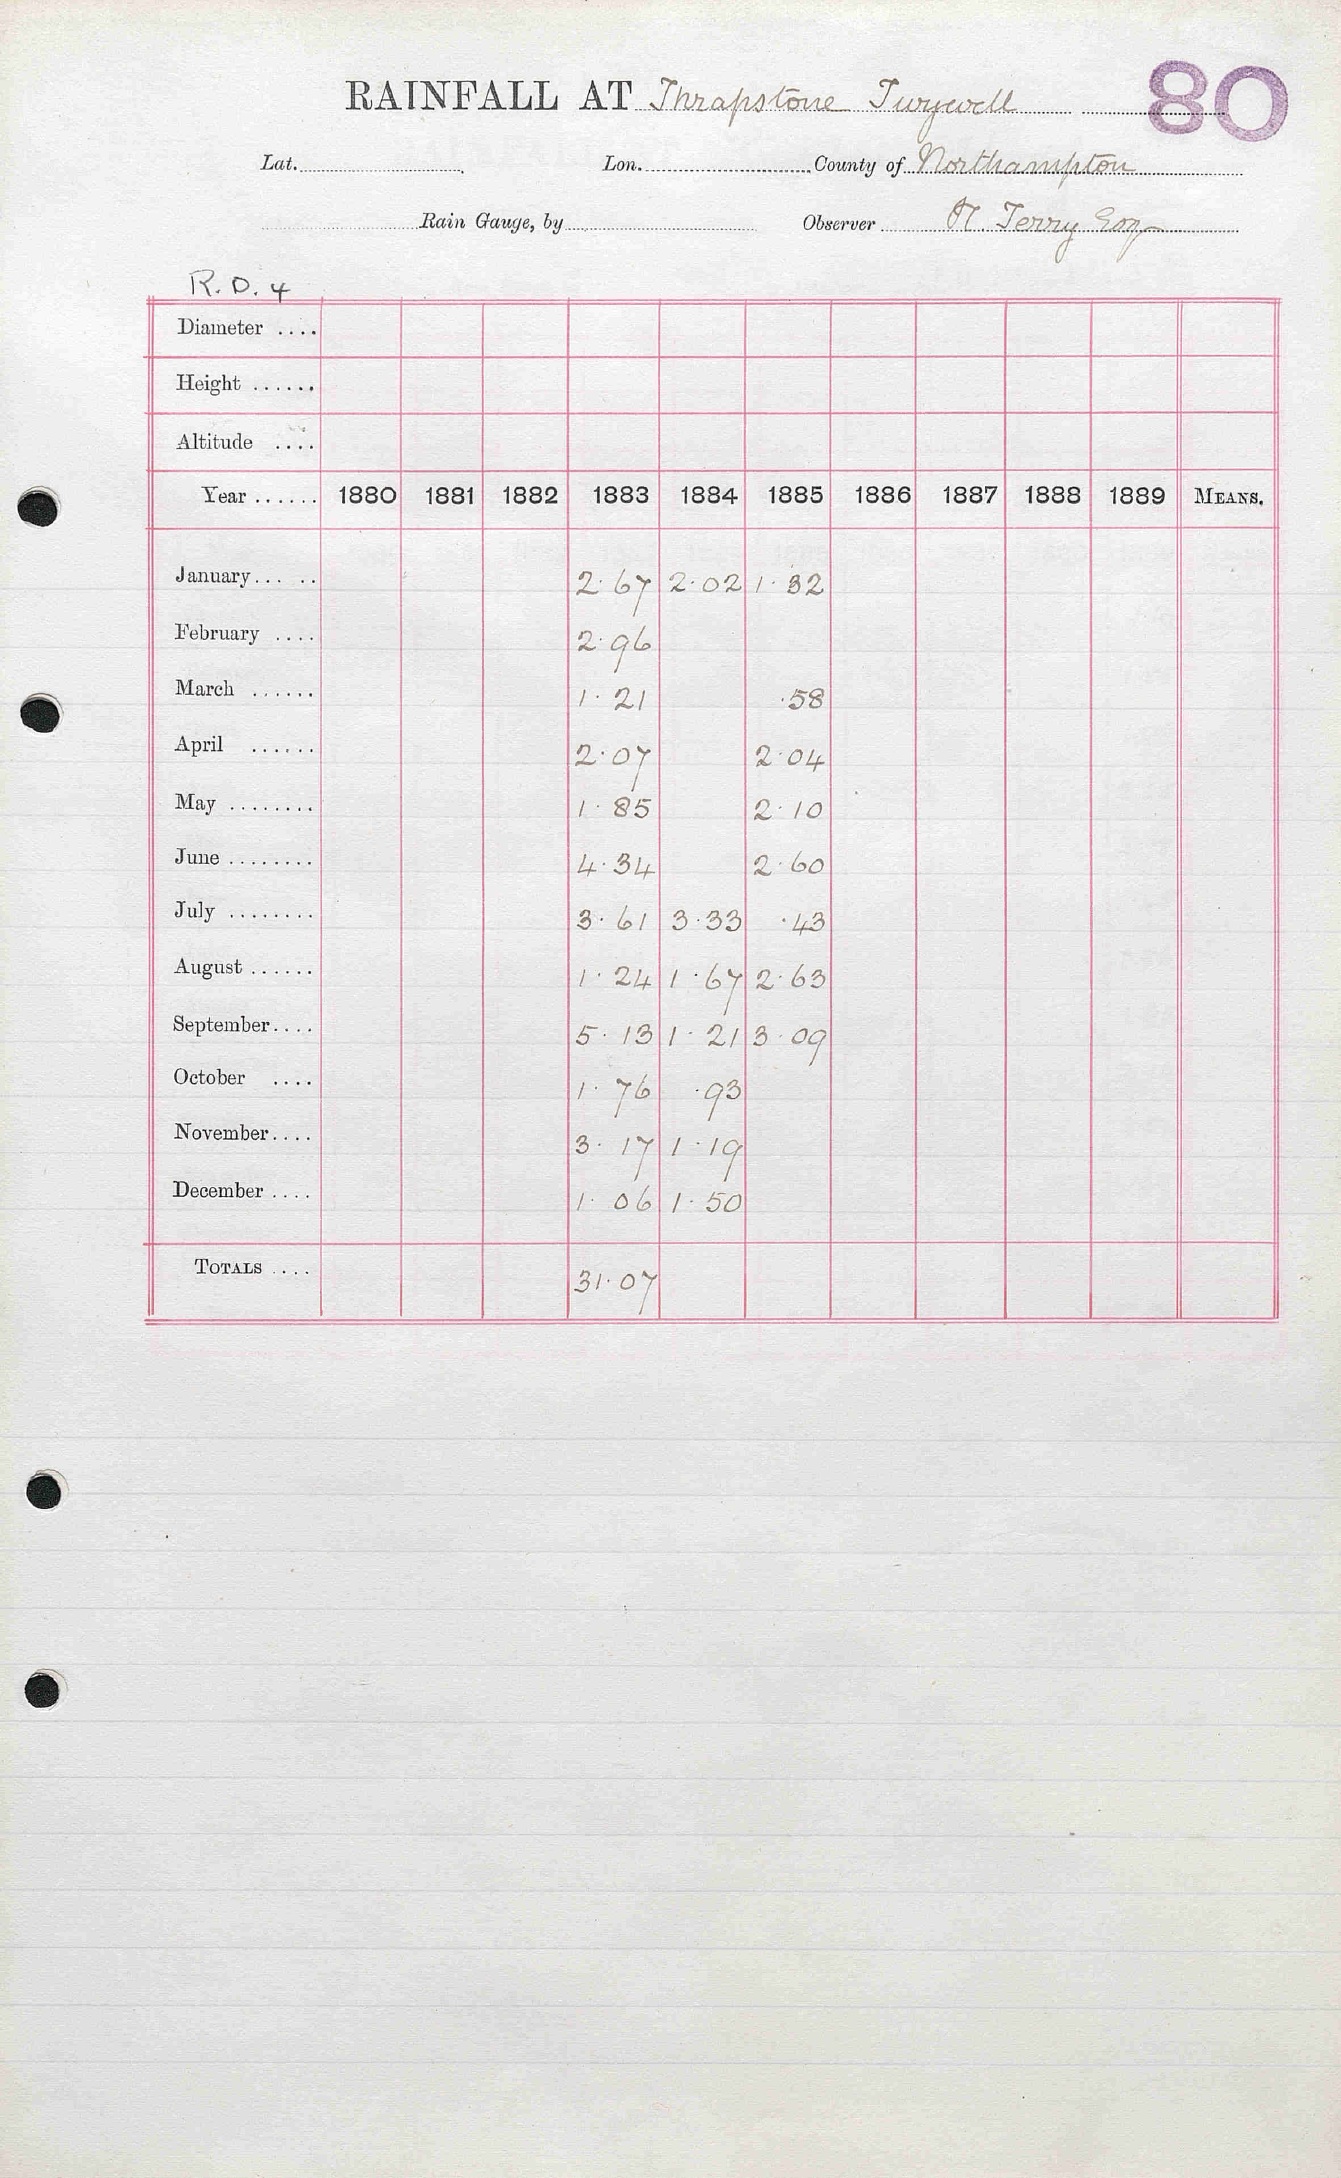 80
RAINFALL AT Thrapstone Twywell
Lat. Lon. County of Northampton
Rain Gauge, by Observer Terry Esq
R. D. 4
Diameter ....
Height ......
Altitude ....
Year ...... 1880 1881 1882 1883 1884 1885 1886 1887 1888 1889 MEANS.
January... .. 2.67 2.02 1.32
February .... 2.96
March ...... 1.21 .58
April ...... 2.07 2.04
May ........ 1.85 2.10
June ........ 4.34 2.60
July ........ 3.61 3.33 .43
August ...... 1.24 1.67 2.63
September.... 5.13 1.21 3.09
October .... 1.76 .93
November.... 3.17 1.19
December .... 1.06 1.50
TOTALS .... 31.07